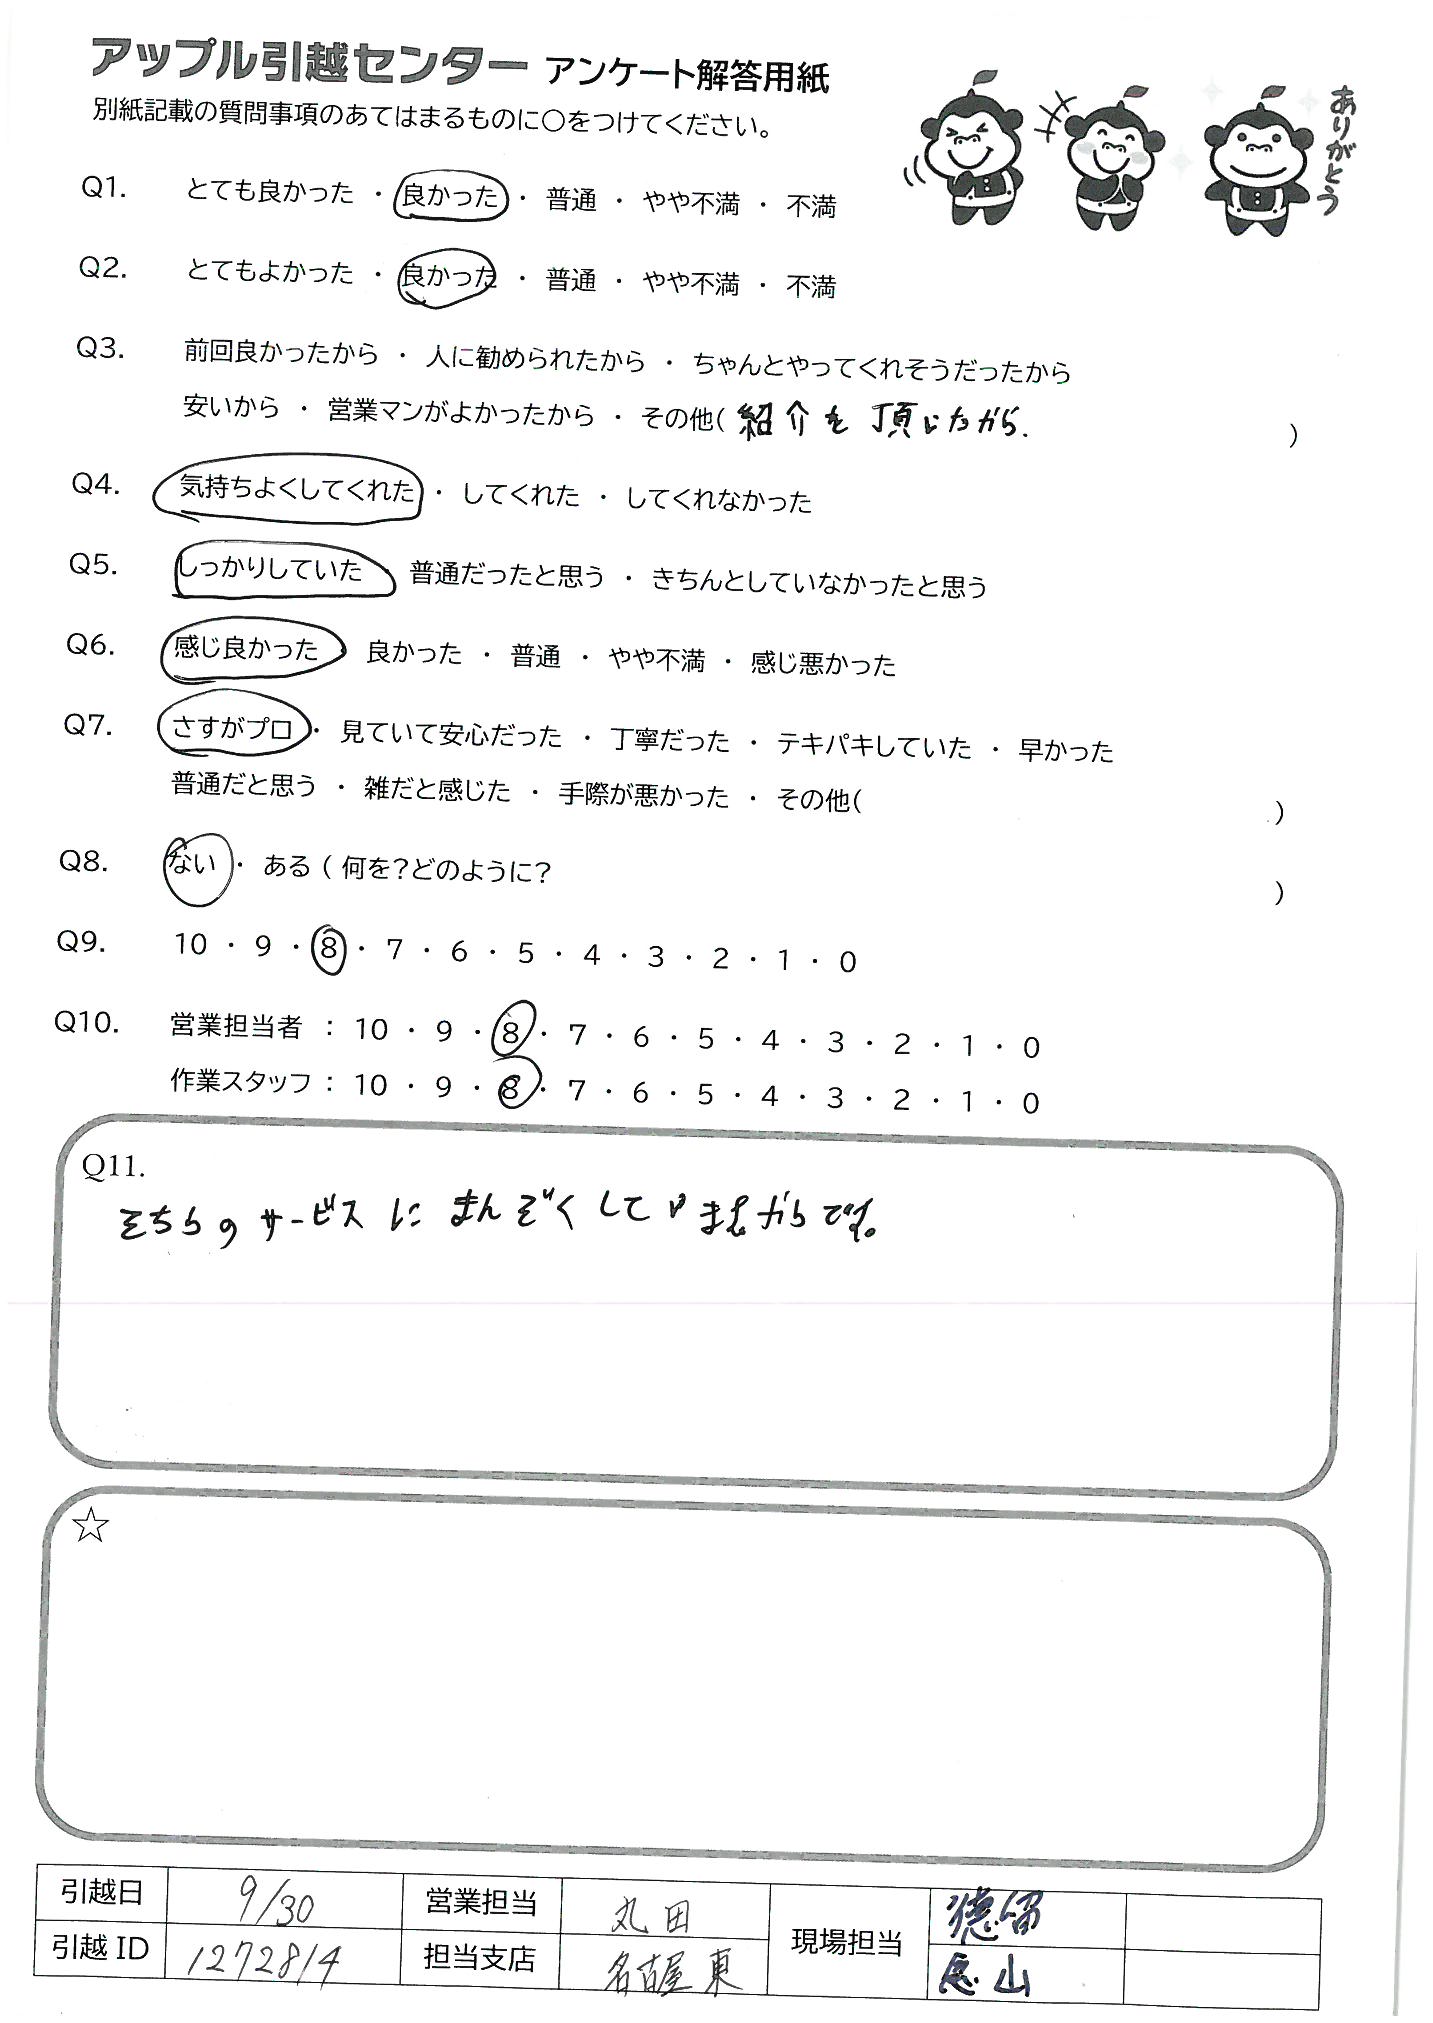 アップル引越センター アンケート解答用紙
別紙記載の質問事項のあてはまるものに○をつけてください。
ありがとう
Q1. とても良かった ・ 良かった ・ 普通 ・ やや不満 ・ 不満
Q2. とてもよかった ・ 良かった ・ 普通 ・ やや不満 ・ 不満
Q3. 前回良かったから ・ 人に勧められたから ・ ちゃんとやってくれそうだったから
安いから ・ 営業マンがよかったから ・ その他( 紹介を頂いたから. )
Q4. 気持ちよくしてくれた ・ してくれた ・ してくれなかった
Q5. しっかりしていた 普通だったと思う ・ きちんとしていなかったと思う
Q6. 感じ良かった 良かった ・ 普通 ・ やや不満 ・ 感じ悪かった
Q7. さすがプロ ・ 見ていて安心だった ・ 丁寧だった ・ テキパキしていた ・ 早かった
普通だと思う ・ 雑だと感じた ・ 手際が悪かった ・ その他( )
Q8. ない ・ ある ( 何を?どのように? )
Q9. 10 ・ 9 ・ 8 ・ 7 ・ 6 ・ 5 ・ 4 ・ 3 ・ 2 ・ 1 ・ 0
Q10. 営業担当者 : 10 ・ 9 ・ 8 ・ 7 ・ 6 ・ 5 ・ 4 ・ 3 ・ 2 ・ 1 ・ 0
作業スタッフ : 10 ・ 9 ・ 8 ・ 7 ・ 6 ・ 5 ・ 4 ・ 3 ・ 2 ・ 1 ・ 0
Q11.
そちらのサービスにまんぞくしていますからです。
☆
引越日 9/30 営業担当 丸田 現場担当 徳留
引越 ID 1272814 担当支店 名古屋東 山